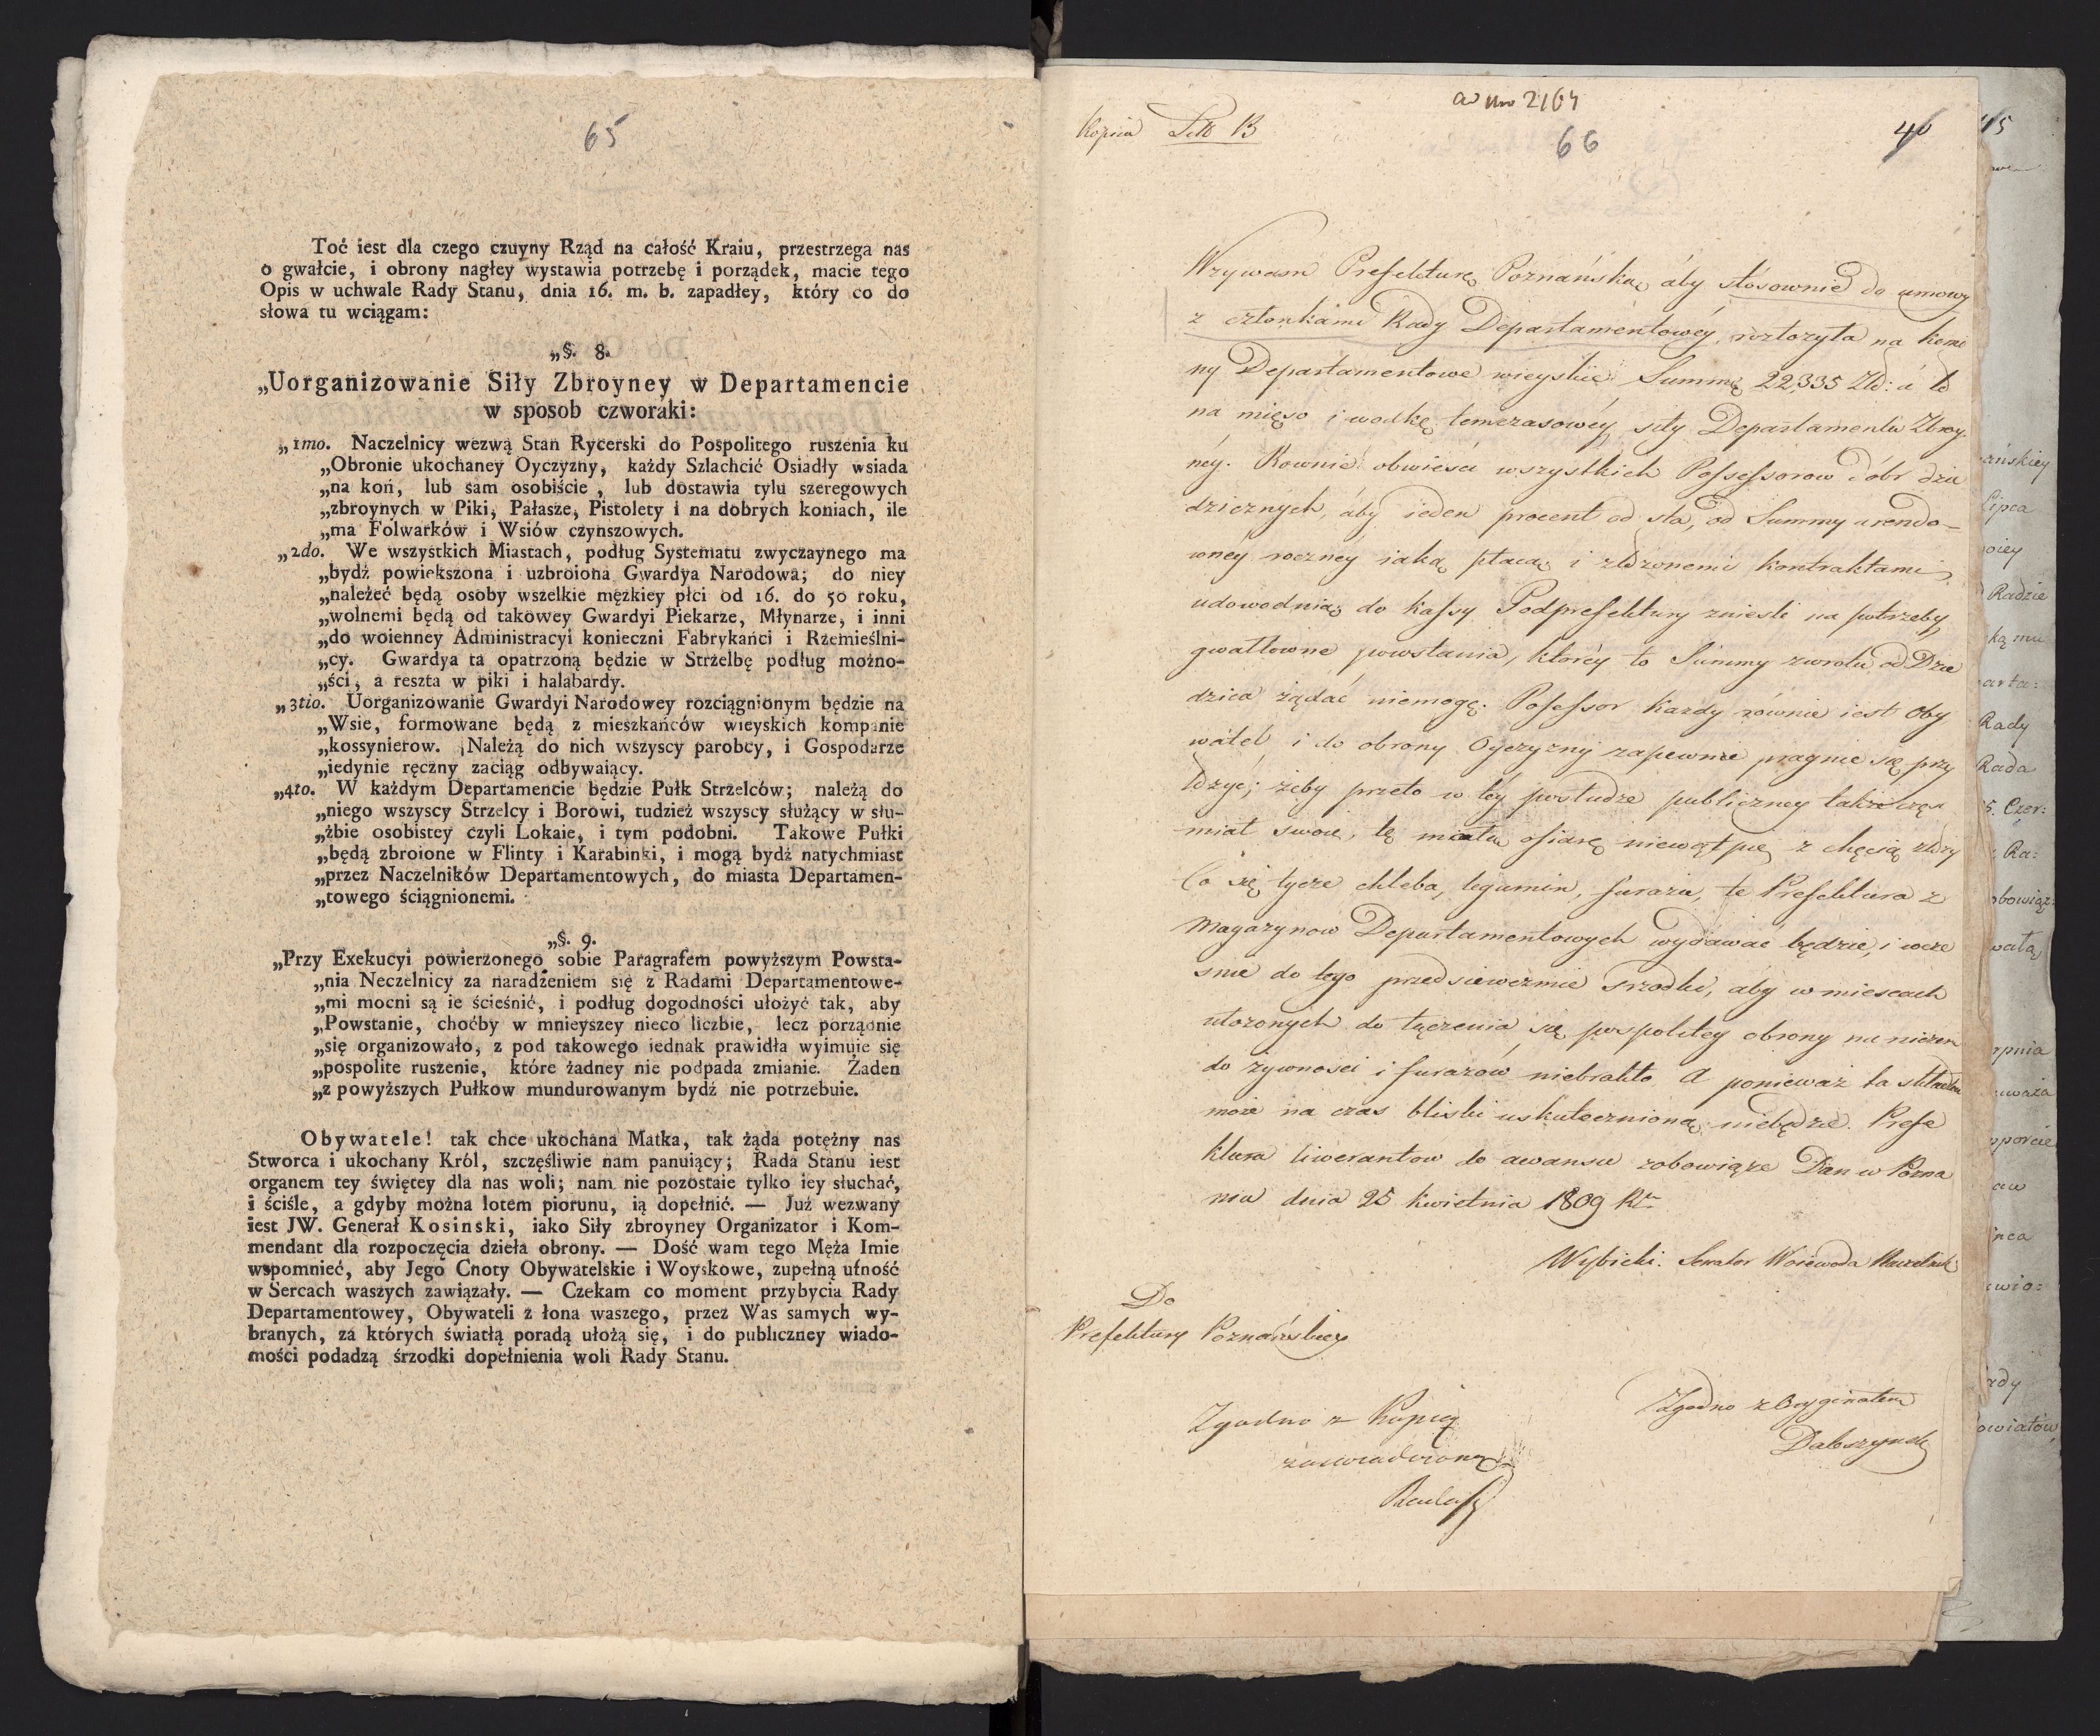 65
Toć iest dla czego czuyny Rząd na całość Kraiu, przestrzega nas
o gwałcie, i obrony nagłey wystawia potrzebę i porządek, macie tego
Opis w uchwale Rady Stanu, dnia 16. m. b. zapadłey, który co do
słowa tu wciągam:
„§. 8.
„Uorganizowanie Siły Zbroyney w Departamencie
w sposob czworaki:
„1mo. Naczelnicy wezwą Stan Rycerski do Pospolitego ruszenia ku
„Obronie ukochaney Oyczyzny, każdy Szlachcić Osiadły wsiada
„na koń, lub sam osobiście, lub dostawia tylu szeregowych
„zbroynych w Piki, Pałasze, Pistolety i na dobrych koniach, ile
„ma Folwarków i Wsiów czynszowych.
„2do. We wszystkich Miastach, podług Systematu zwyczaynego ma
„bydź powiekszona i uzbroiona Gwardya Narodowa; do niey
„należeć będą osoby wszelkie męzkiey płci od 16. do 50 roku,
„wolnemi będą od takowey Gwardyi Piekarze, Młynarze, i inni
„do woienney Administracyi konieczni Fabrykańci i Rzemieślni-
„cy. Gwardya ta opatrzoną będzie w Strzelbę podług możno-
„ści, a reszta w piki i halabardy.
„3tio. Uorganizowanie Gwardyi Narodowey rozciągnionym będzie na
„Wsie, formowane będą z mieszkańców wieyskich kompanie
„kossynierow. Należą do nich wszyscy parobcy, i Gospodarze
„iedynie ręczny zaciąg odbywaiący.
„4to. W każdym Departamencie będzie Pułk Strzelców; należą do
„niego wszyscy Strzelcy i Borowi, tudzież wszyscy służący w słu-
„żbie osobistey czyli Lokaie, i tym podobni. Takowe Pułki
„będą zbroione w Flinty i Karabinki, i mogą bydź natychmiast
„przez Naczelników Departamentowych, do miasta Departamen-
„towego ściągnionemi.
„§. 9.
„Przy Exekucyi powierzonego sobie Paragrafem powyższym Powsta-
„nia Neczelnicy za naradzeniem się z Radami Departamentowe-
„mi mocni są ie ścieśnić, i podług dogodności ułożyć tak, aby
„Powstanie, choćby w mnieyszey nieco liczbie, lecz porządnie
„się organizowało, z pod takowego iednak prawidła wyimuie się
„pospolite ruszenie, które żadney nie podpada zmianie. Żaden
„z powyższych Pułkow mundurowanym bydź nie potrzebuie.
Obywatele! tak chce ukochana Matka, tak żąda potężny nas
Stworca i ukochany Król, szczęśliwie nam panuiący; Rada Stanu iest
organem tey świętey dla nas woli; nam nie pozostaie tylko iey słuchać,
i ściśle, a gdyby można lotem piorunu, ią dopełnić. — Już wezwany
iest JW. Generał Kosinski, iako Siły zbroyney Organizator i Kom-
mendant dla rozpoczęcia dzieła obrony. — Dość wam tego Męża Imie
wspomnieć, aby Jego Cnoty Obywatelskie i Woyskowe, zupełną ufność
w Sercach waszych zawiązały. — Czekam co moment przybycia Rady
Departamentowey, Obywateli z łona waszego, przez Was samych wy-
branych, za których światłą poradą ułożą się, i do publiczney wiado-
mości podadzą śrzodki dopełnienia woli Rady Stanu.
ad Nro 2164
Kopiia Litt B
66
46
Wzywam Prefekturę Poznańską áby stósownie do umowy
z członkami Rady Departamentowéy, rozłożyła na komi
ny Departamentowe wieyskie Summę 22,335 Złł: á to
na mięso i wodkę temczasowéy siły Departamentu Zbroy
néy. Rownie obwieści wszystkich Possessorow dóbr dzie
dzicznych, áby ieden procent od sta, od Summy arendo-
wnéy roczney iaką płacą i złożonemi kontraktami
udowodnią, do kassy Podprefektury znieśli na potrzeby
gwałtowne powstania, któréy to Summy zwrotu od Dzie
dzica żądać niemogą. Posessor każdy rownie iest Oby
watel i do obrony Oyczyzny zapewnie pragnie się przy
łożyć; żeby przeto w téy posłudze publiczney także częś
miał swoię, tę małą ofiarę niewątpię z chęcią złoży
Co się tycze chleba, legumin, furażu, te Prefektura z
Magazynow Departamentowych wydawać będzie, i wcze
snie do tego przedsiewezmie srzodki, áby w miescach
ułożonych do łączenia się pospolitey obrony na niczem
do żywnosci i furażów niebrakło. A ponieważ ta składka
może na czas bliski uskutecznioną niebędzie. Prefe
ktura liwerantow do awansu zobowiąże Dan w Pozna
niu dnia 25 Kwietnia 1809 Rku
Wybicki. Senator Woiewoda Naczelnik
Do
Prefektury Poznańskiey
Zgodno z Kopią
zaswiadczoną
Zgodno z Oryginałem
ańskiey
Lipca
Radzie
ką mu
arta:
Rady
Rada
5. Czer:
Ra:
obowiąz:
wałą
rpnia
uważa
pporcie
wio:
ady
owiatów